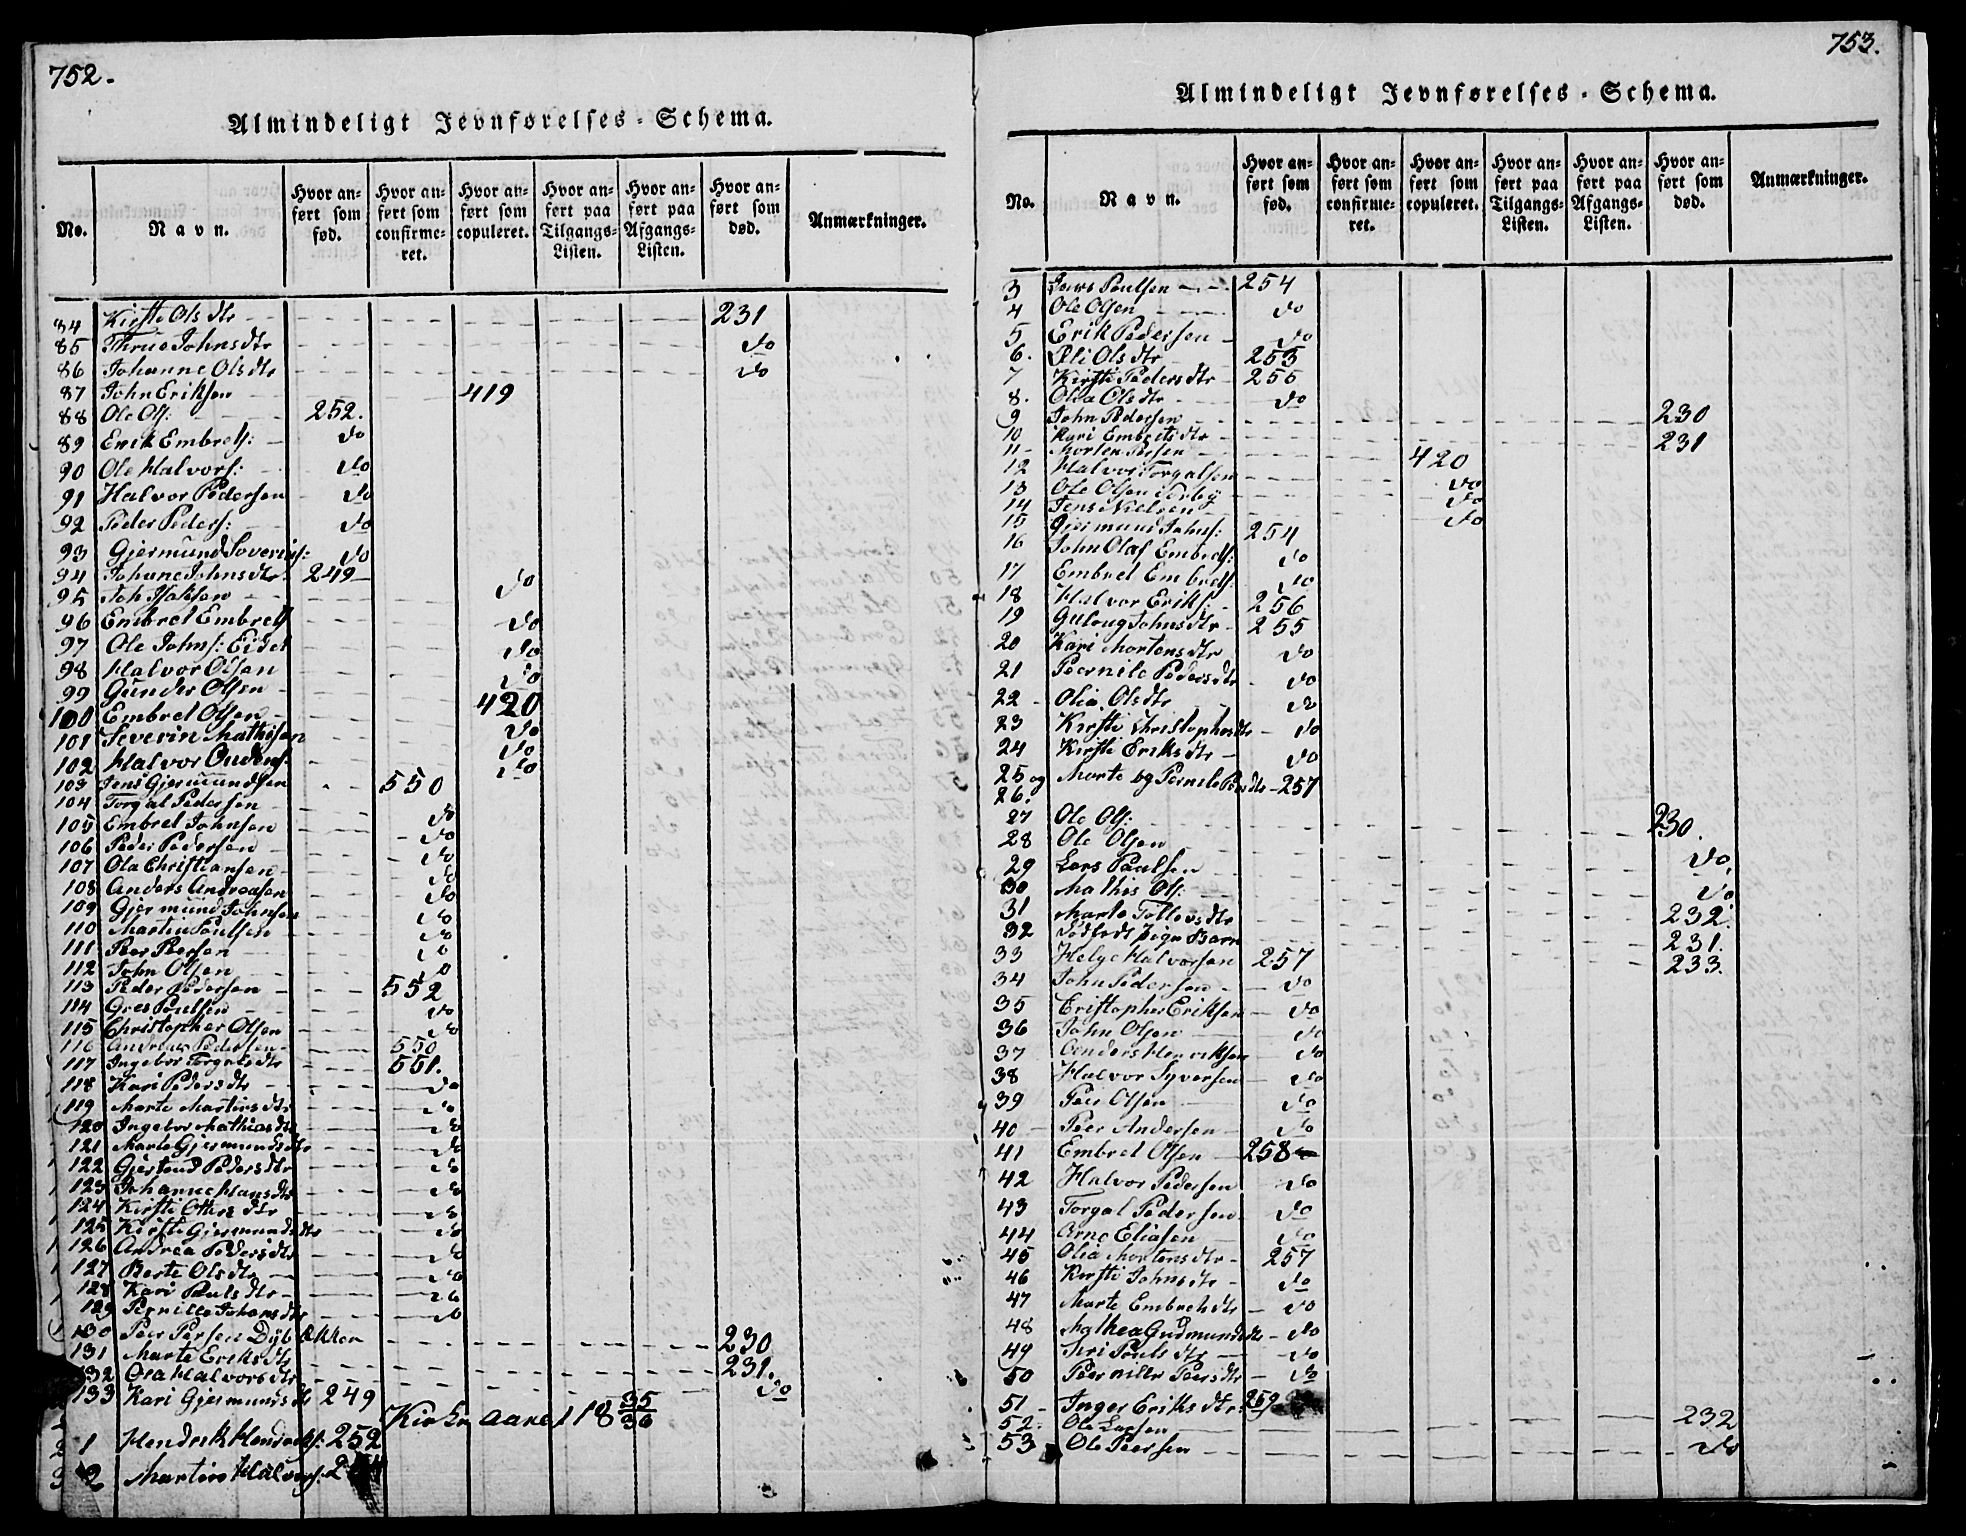 752.
Almindeligt Jevnførelses-Schema.
No. Navn. Hvor anført som fød. Hvor anført som confirmeret. Hvor anført som copuleret. Hvor anført paa Tilgangs-Listen. Hvor anført paa Afgangs-Listen. Hvor anført som død. Anmærkninger.
84 Kirsti Olsdtr 231
85 Johnsdtr do
86 Johanne Olsdtr do
87 John Eriksen 419
88 Ole Ols: 252.
89 Erik Embrets: do
90 Ole Halvors: do
91 Halvor Pedersen do
92 Peder Peders: do
93 Gjermund do
94 Johnsdtr 249 do
95
96 Embret Embrets do
97 Ole Johns: Eidet do
98 Halvor Olsen do
99 Gunder Olsen 420
100 Embret Olsen do
101 Severin Mathisen do
102 Halvor do
103 Jens Gjermundsen 550
104 Torgal Pedersen do
105 Embret Johnsen do
106 Peder Pedersen do
107 Ola Christiansen do
108 Anders Andreasen do
109 Gjermund Johnsen do
110 Martin Poulsen do
111 Peer Persen do
112 John Olsen do
113 Peder Pedersen 552
114 Poulsen do
115 Christopher Olsen do
116 Andreas Pedersen 550
117 Ingebor Torgalsdtr 551.
118 Kari Pedersdtr do
119 Marte Martinsdtr do
120 Ingebor Mathiasdtr do
121 Marte Gjermundsdtr do
122 Pedersdtr do
123 Johanne Hansdtr do
124 Kirsti do
125 Kirsti Gjermundsdtr do
126 Andrea Pedersdtr do
127 Berte Olsdtr do
128 Kari Paulsdtr do
129 Pernille Johansdtr do
130 Peer Persen 230
131 Marte Eriksdtr 231.
132 Halvorsdtr do
133 Kari Gjermundsdtr 249
Kirkeaaret 1835/36
1 Hendrik 252
2 Martin Halvors:
753.
Almindeligt Jevnførelses-Schema.
No. Navn. Hvor anført som fød. Hvor anført som confirmeret. Hvor anført som copuleret. Hvor anført paa Tilgangs-Listen. Hvor anført paa Afgangs-Listen. Hvor anført som død. Anmærkninger.
3 Poulsen 254
4 Ole Olsen do
5 Erik Pedersen do
6. Olsdtr 253
7 Kirsti Pedersdtr 255
8. Olea Olsdtr do
9 John Pedersen 230
10 Kari Embretsdtr 231
11 Morten 420
12 Halvor Torgalsen do
13 Ole Olsen do
14 Jens Nielsen do
15 Gjermund Johns: 254
16 John Olaf Embrets: do
17 Embret Embrets do
18 Halvor Eriks: 256
19 Guloug Johnsdtr 255
20 Kari Mortensdtr do
21 Peernile Pedersdtr do
22 Olia Olsdtr do
23 Kirsti Christophersdtr do
24 Kirsti Eriksdtr do
25 og 26. Marte og Pernile 257
27 Ole Ols: 230.
28 Ole Olsen do
29 Lars Paulsen do
30 Mathis Ols: 232.
31 Marte Tollevsdtr 231.
32 Dødfødt Pige Barn 233.
33 Helge Halvorsen 257
34 John Pedersen do
35 Cristopher Eriksen do
36 John Olsen do
37 Anders Henriksen do
38 Halvor Syversen do
39 Peer Olsen do
40 Peer Andersen do
41 Embret Olsen 258
42 Halvor Pedersen do
43 Torgal Pedersen do
44 Arne Eliasen do
45 Olia Mortensdtr 257
46 Kirsti Johnsdtr do
47 Marte Embretsdtr do
48 Mathea Gudmundsdtr do
49 Siri Poulsdtr do
50 Peernille Peersdtr do
51 Inger Eriksdtr 259
52 Ole Larsen 232
53 Ole Peersen do